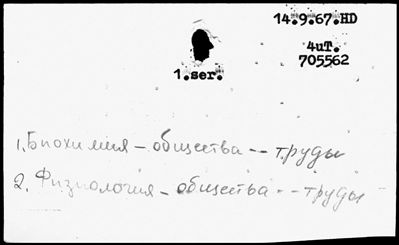 14.9.67.HD
4uT.
705562
1.ser.
1. Биохимия - общества -- труды
2. Физиология - общества -- труды